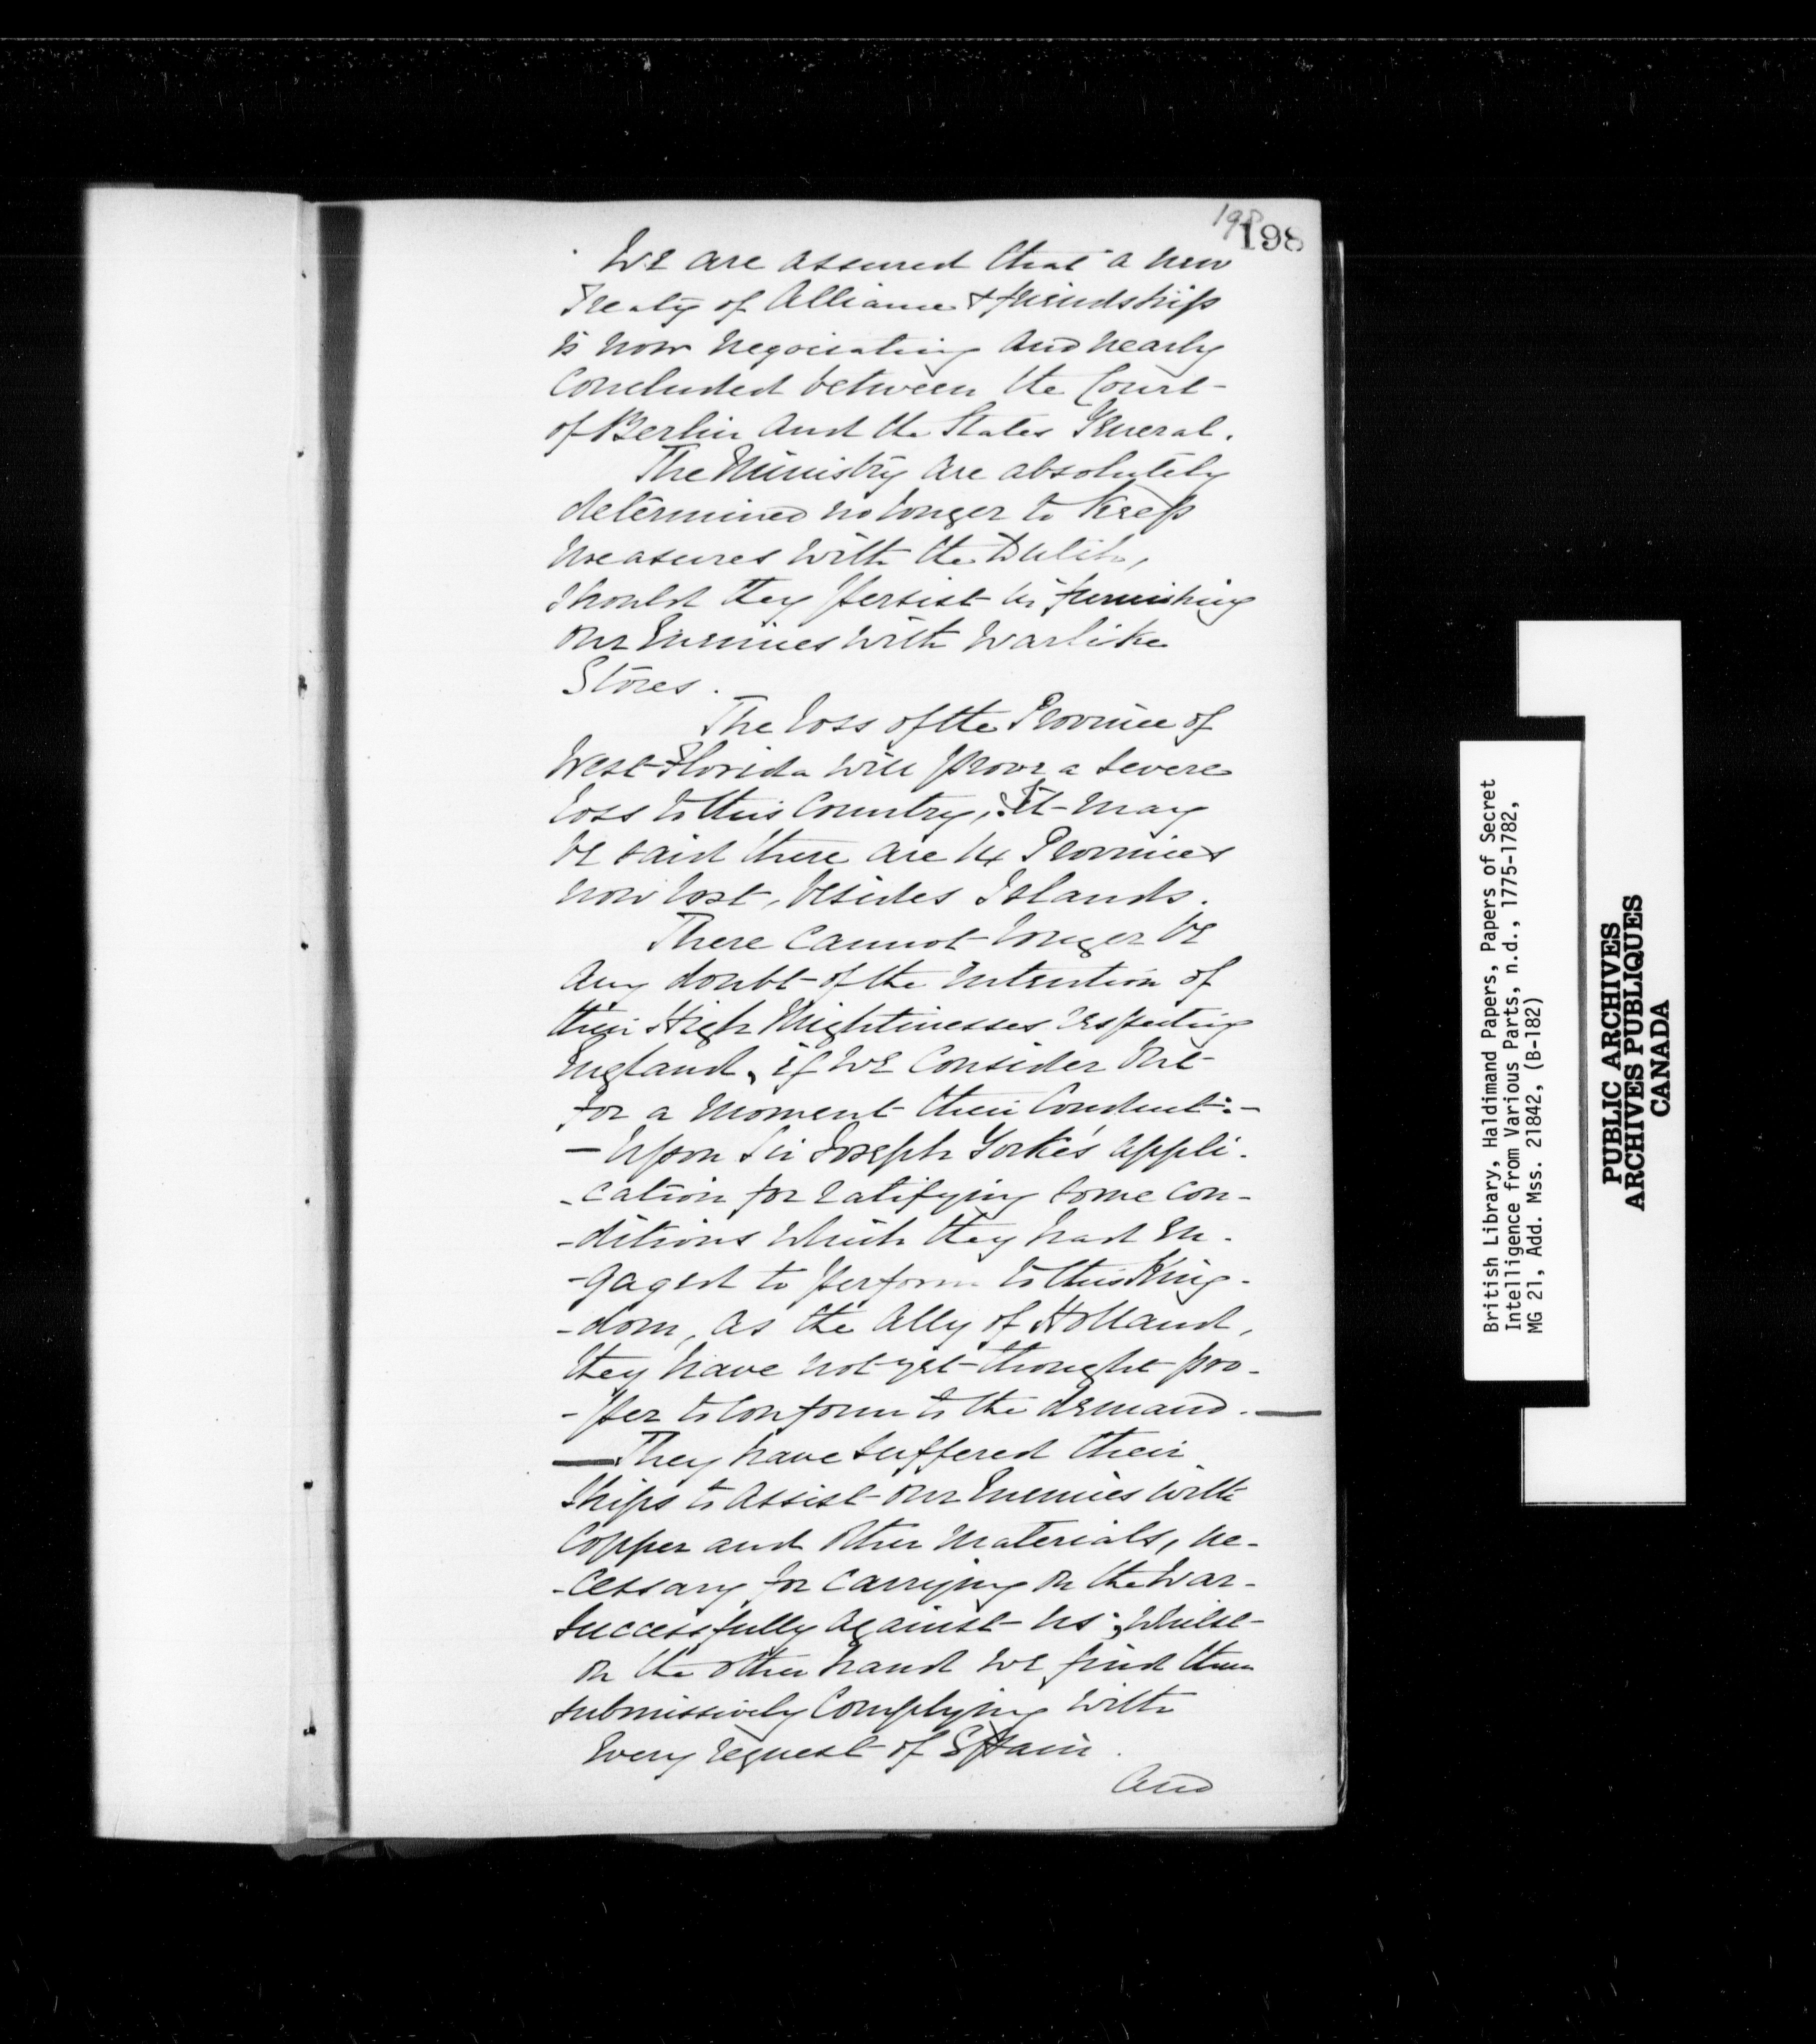 198
198
We are assured that a new
Treaty of Alliance & friendship
is now negociating and nearly
Concluded between the Court
of Berlin and the States General.
The Ministry are absolutely
determined no longer to keep
measures with the Dutch,
should they persist in furnishing
our Enemies with warlike
Stores.
The loss of the Province of
West Florida will prove a severe
loss to this Country, It may
be said there are 14 Provinces
now lost, besides Islands.
There cannot longer be
any doubt of the intention of
their High Mightinesses respecting
England, if we Consider but
for a moment their Conduct:-
- Upon Sir Joseph Yorke's appli-
-cation for ratifying some con-
-ditions which they had en-
-gaged to perform to this King-
-dom, as the Ally of Holland,
they have not yet thought pro-
-per to conform to the demand. —
— They have suffered their
Ships to assist our Enemies with
Copper and other materials, ne-
-cessary for carrying on the War-
successfully against us; Whilst
on the other hand we find them
submissively Complying with
every request of Spain.
And
British Library, Haldimand Papers, Papers of Secret
Intelligence from Various Parts, n.d., 1775-1782,
MG 21, Add. Mss. 21842, (B-182)
PUBLIC ARCHIVES
ARCHIVES PUBLIQUES
CANADA